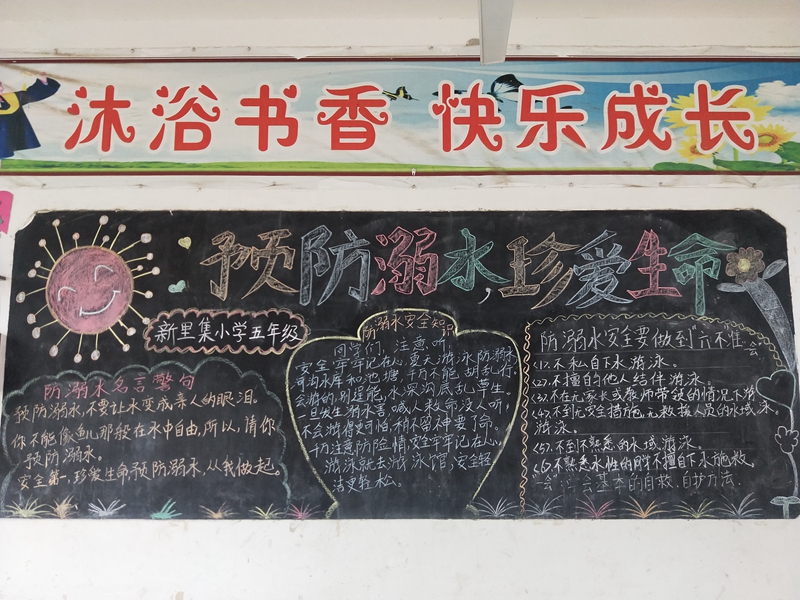 沐浴书香 快乐成长
预防溺水,珍爱生命
新里集小学五年级
防溺水名言警句
预防溺水,不要让水变成亲人的眼泪。
你不能像鱼儿那般在水中自由,所以,请你
预防溺水。
安全第一,珍爱生命,预防溺水,从我做起。
防溺水安全知识
同学们,注意听,
安全牢牢记在心,夏天游泳防溺水,
河沟水库和池塘,千万不能胡乱行.
会游的,别逞能,水深沟底乱草生.
一旦发生溺水害,喊人救命没人听,
不会游得更可怕,稍不留神要了命.
千万注意防险情,安全牢牢记在心,
游泳就去游泳馆,安全轻
洁更轻松。
防溺水安全要做到“六不准一会
<1>.不私自下水游泳。
<2>.不擅自与他人结伴游泳。
<3>.不在无家长或教师带领的情况下游泳。
<4>.不到无安全措施,无救援人员的水域
游泳。
<5>.不到不熟悉的水域游泳
<6>.不熟悉水性的同学不擅自下水施救。
“一会”:学会基本的自救、自护方法.